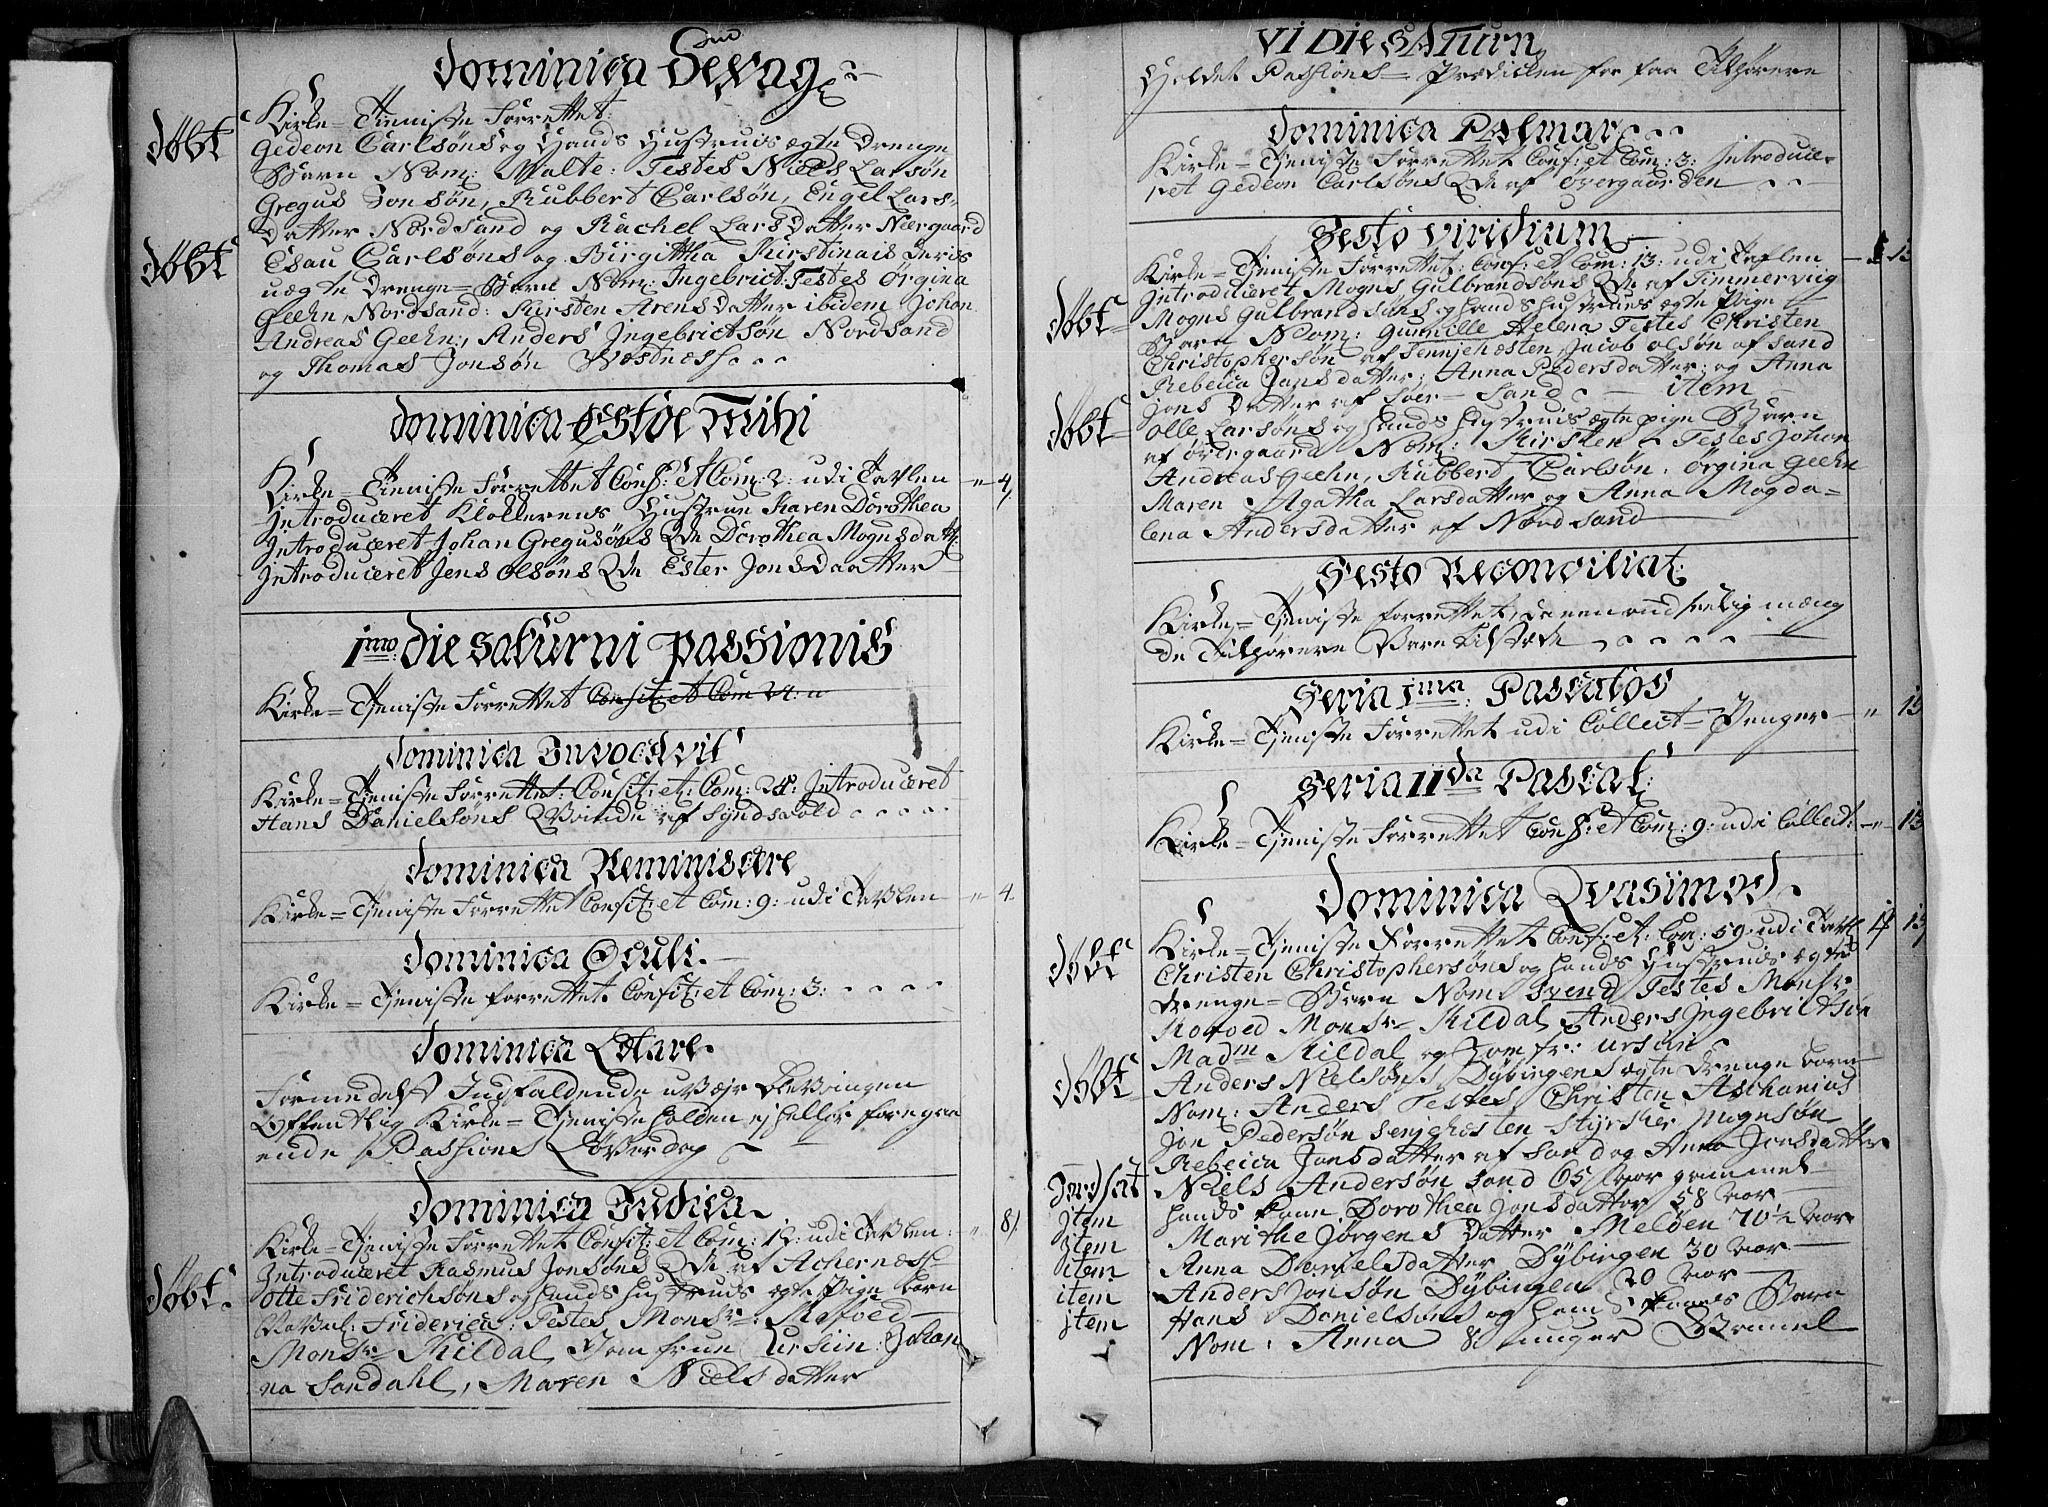 Dominica Sexag:
Kirke=Tienniste Forrettet:
Døbt Gedeon Carlsøns og Hands Hustrues ægte Drenge
Barn Nom: Malte: Testes Niels Larsøn
Gregus Jonsøn, Rubbert Carlsøn, Engel Lars-
Datter Nordsand og Rachel Lars Datter Neergaard
Døbt Esau Carlsøns og Birgitha Kirstina
uægte Drenge=Barn Nom: Ingebrict: Testes Ørgina
Geehn, Nordsand: Kirsten Arens Datter ibidem Johan
Andreas Geehn:, Anders Ingebrictsøn Nordsand
og Thomas Jonsøn Wæstnæss
Dominica Esto Mihi
Kirke=Tienniste Forrettet Conf: et Com: 2: udi Tavlen - " 4
Introduceret Klokkerens Hustrue Karen Dorothea
Introduceret Johan Gregusøns Qde Dorothea Mognsdatt:
Introduceret Jens Olsøns Qde Ester Jonsdaatter
1mo die saturni passionis
Kirke=Tjeniste Forrettet Confit: et Com 24:
Dominica Invocavit
Kirke=Tjeniste Forrettet: Confit: et: Com: 24: Introduceret
Hans Danielsøns Qvinde af Syndsvold
Dominica Reminiscere
Kirke=Tjeniste Forrettet Confit: et Com: 9: udi Tavlen - " 4
Dominica Oculi
Kirke=Tjeniste forrettet Confit: et Com: 3:
Dominica Letare
Formedelst Indfaldende uvæjr blev ingen
Offentlig Kirke=Tjeniste holden ej heller foregaa
ende Passions Løverdag
Dominica Judica
Kirke=Tjeniste Forrettet Confit: et Com: 12: udi Tavlen: " 8
Introduceret Rasmus Jonsøns Qde af Achernæss
Døbt: Otte Friderichsøns og hands hustrues ægte Pige barn
Friderica: Testes Monsr: Mofoed
Monsr Kildal, Jomfrue Ursiin: Johan
na Sandahl, Maren Nielsdatter
VI Die Saturn
Holdet Passions=Prædicken for faa Tilhørere
Dominica Palmar:
Kirke=Tjeniste Forrettet Conf: et Com: 3: Introduce-
ret Gedeon Carlsøns Qde af Øvergaarden
Festo Viridium
Kirke=Tjeniste Forrettet: Conf: et Com: 13: udi Taflen
Introduceret Mogns Gulbrandsøns Qde af Timmerviig
Døbt Mogns Gulbrandsøns og hands hustrues ægte Pige
Barn Nom: Gunnille Helena Testes Christen
Christophersøn af Tennjehæsten, Jacob Olsøn af Sand
Rebecca Jansdatter, Anna Pedersdatter: og Anna
Jons Datter af Sand item
Døbt Olle Larsøns og hands hustrues ægte pige Barn
af Øvergaard Nom: Kirsten Testes Johan
Andreas Geehn, Rubbert Carlsøn, Ørgina Geehn
Maren Agatha Larsdatter og Anna Magda=
lena Andersdatter af Nordsand
Festo Reconciliat:
Kirke=Tjeniste forrettet, da een andseelig mæng
de Tilhørere Vare tilstæde
Feria 1ma Paschatos
Kirke=Tjeniste Forrettet udi Collect=Penger - " 15
Feria IIda Pascat:
Kirke=Tjeniste Forrettet Conf: et Com: 9: udi Collect: - " 13
Dominica Qvasimod.
Kirke=Tjeniste Forrettet Conf: et: Com: 59: udi Tavl
Døbt Christen Christophersøns og hands Hustrues ægte
Drenge=Barn Nom: Svend Testes Monsr
Mofoed Monsr Kildal, Anders Ingebrictsøn
Madm Kildal og Jomfr: Ursiin
Døbt Anders Nielsøns Dybingens ægte Drenge barn
Nom: Anders Testes Christen Aschanius
Jon Pedersøn Senjehæsten Styrsker Mognsøn
Rebecca Jonsdatter af Sand og Anna Jonsdatter
Jordsat Niels Andersøn Sand 65 Aar gammel
Item hands Kone Dorothea Jonsdatter 58 Aar
Item Marithe Jørgens Datter Meløen 70½ Aar
item Anna Danielsdatter Dybingen 30 Aar
item Anders Jonsøn Dybingen 20 Aar
Item Hans Danielsøns og hands Kones Barn
Nom: Anna 8 uuger Gammel